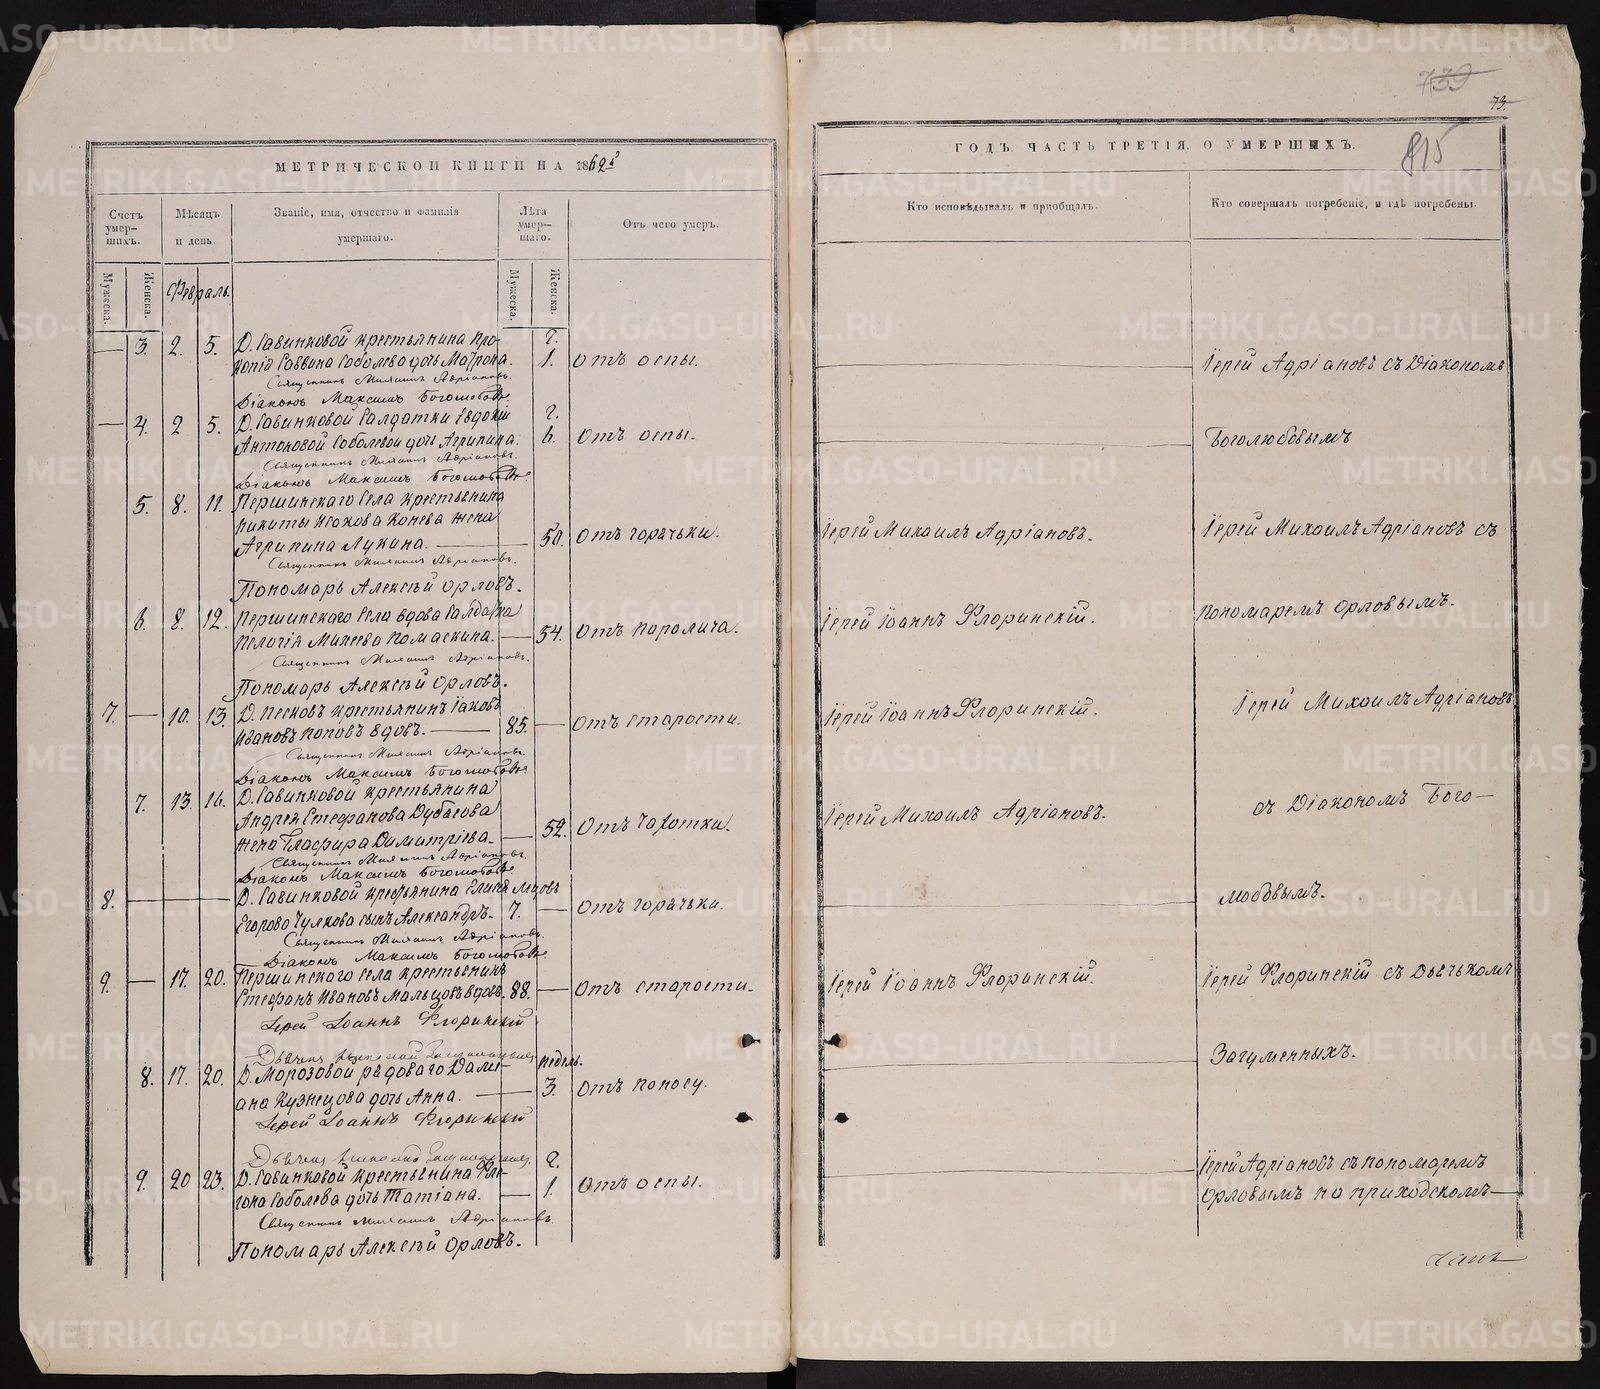 МЕТРИЧЕСКОЙ КНИГИ НА 1862й
Счетъ умер-шихъ.
Мѣсяцъ и день.
Званіе, имя, отчество и фамилія умершаго.
Лѣта умер-шаго.
Отъ чего умеръ.
Мужеска.
Женска.
Мужеска.
Женска.
Февраль.
— 3. 2. 5. Д. Савинковой крестьянина Про-
копія Саввина Соболева дочь Матрона. г. 1. Отъ оспы.
Священникъ Михаилъ Адріановъ.
Діаконъ Максимъ Боголюбовъ.
— 4. 2 5. Д. Савинковой Салдатки Евдокіи
Антоновой Соболевой дочь Агрипина. г. 6. Отъ оспы.
Священникъ Михаилъ Адріановъ.
Діаконъ Максимъ Боголюбовъ.
5. 8. 11. Першинскаго Села крестьянина
Никиты Исакова Конева жена
Агрипина Лукина. — 50. Отъ горячьки.
Священникъ Михаилъ Адріановъ.
Пономарь Алексѣй Орловъ.
6. 8. 12. Першинскаго Села вдова Салдатка
Пелогія Михеева Помаскина. — 54. Отъ поролича.
Священникъ Михаилъ Адріановъ.
Пономарь Алексѣй Орловъ.
7. — 10. 13. Д. Песковъ крестьянинъ Іаковъ
Ивановъ Поповъ вдовъ. — 85. — Отъ старости.
Священникъ Михаилъ Адріановъ.
Діаконъ Максимъ Боголюбовъ
7. 13. 16. Д. Савинковой крестьянина
Андрея Стефанова Дубасова
жена Гласфира Димитріева. — 52. Отъ чахотки.
Священникъ Михаилъ Адріановъ.
Діаконъ Максимъ Боголюбовъ
8. — Д. Савинковой крестьянина Елисея
Егорова Чулкова сынъ Александръ. 7. — Отъ горячьки.
Священникъ Михаилъ Адріановъ.
Діаконъ Максимъ Боголюбовъ
9. — 17. 20. Першинского села крестьянинъ
Стефанъ Ивановъ Мальцовъ вдовъ. 88. — Отъ старости.
Іерей Іоаннъ Флоринскій
8. 17. 20. Д. Морозовой рядоваго Дами-
ана Кузнецова дочь Анна. — недель. 3. Отъ поносу.
Іерей Іоаннъ Флоринскій
9. 20 23. Д. Савинковой крестьянина Фле-
гона Соболева дочь Татіана. — г. 1. Отъ оспы.
Священникъ Михаилъ Адріановъ.
Пономарь Алексѣй Орловъ.
739
73.
815
ГОДЪ, ЧАСТЬ ТРЕТІЯ, О УМЕРШИХЪ.
Кто исповѣдывалъ и приобщалъ.
Кто совершалъ погребеніе, и гдѣ погребены.
Іерей Адріановъ съ Діакономъ
Боголюбовымъ
Іерей Михаилъ Адріановъ. Іерей Михаилъ Адріановъ съ
Іерей Іоаннъ Флоринскій. Пономаремъ Орловымъ.
Іерей Іоаннъ Флоринскій. Іерей Михаилъ Адріановъ
Іерей Михаилъ Адріановъ. съ Діакономъ Бого—
любовымъ.
Іерей Іоаннъ Флоринскій. Іерей Флоринскій съ Дьячькомъ
Загуменныхъ.
Іерей Адріановъ съ пономаремъ
Орловымъ на приходскомъ—